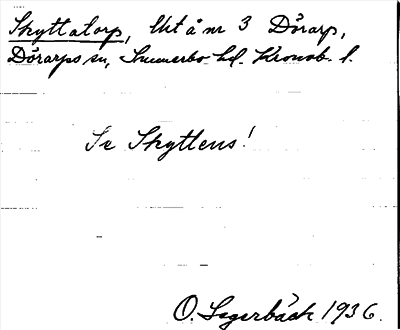 Skyttatorp, Utå nr 3 Dörarp,
Dörarps sn, Sunnerbo hd. Kronob. l.
Se Skyttens!
O. Segerbäck 1936.